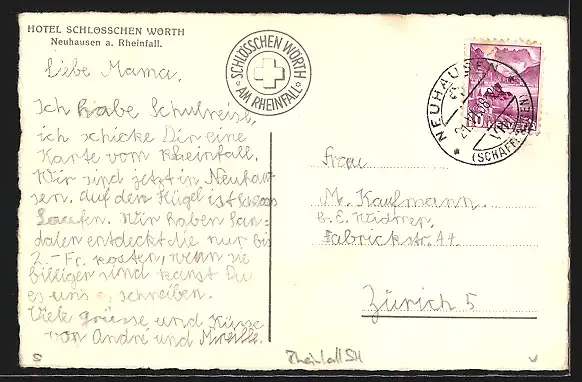 HOTEL SCHLÖSSCHEN WÖRTH
Neuhausen a. Rheinfall.
SCHLÖSSCHEN WÖRTH
AM RHEINFALL
NEUHAUSEN
(SCHAFFHAUSEN)
Liebe Mama,
Ich habe Schulreise,
ich schicke Dir eine
Karte vom Rheinfall.
Wir sind jetzt in Neuhau-
sen. auf den Hügel ist
Laufen. Wir haben San-
dalen entdeckt die nur bis
2.- Fr. kosten, wenn sie
billigen sind kanst Du
es uns schreiben.
Viele Grüsse und Küsse
von André und Mireille.
Frau
M. Kaufmann
b. E. Widmer,
Fabrickstr. 44
Zürich 5
Rheinfall SH